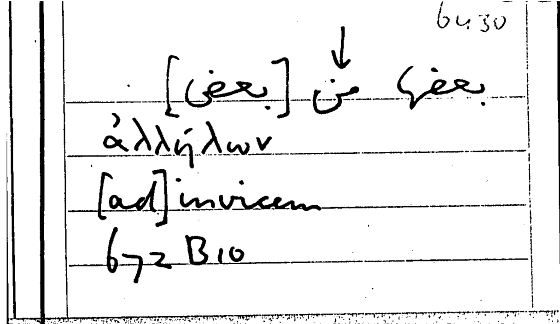 6430
بعضها من [بعض]
ἀλλήλων
[ad] invicem
672 B10